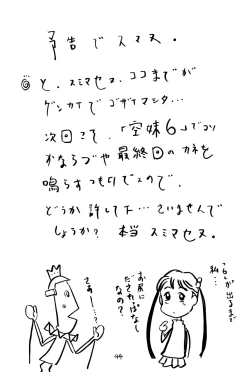 予告でスマヌ。
と、スミマセヌ、ココまでが
ゲンカイでゴザイマシタ…
次回こそ、「空妹6」でコソ
かならづや最終回のカネを
鳴らすつもりでエので、
どうか許して下…さいませんで
しょうか? 本当スミマセヌ。
「6」が出るまで
私…
お尻に
だされっぱなし
なの?
さあー…?
44